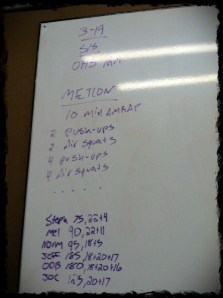 3-19
S/S
OHS
METCON
10 min AMRAP
2 push-ups
2 air squats
4 push-ups
4 air squats
. . . . .
Steph 75, 22+4
mel 90, 22+11
norm 95, 18+3
Jeff 185, 18+20+17
JOC 125, 20+17